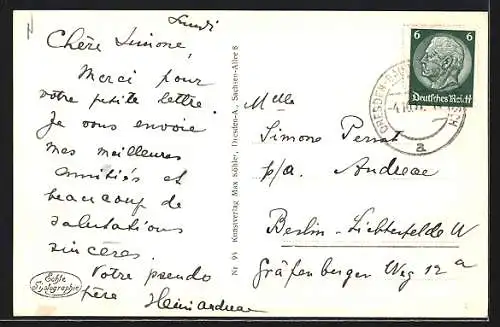 Lundi
Chère Simone,
Merci pour
votre petite lettre.
Je vous envoie
mes meilleures
amitiés et
beaucoup de
salutations
sincères.
Votre pseudo
père
Echte
Fotographie
Nr 94 Kunstverlag Max Köhler, Dresden-A., Sachsen-Allee 8
6 6
Deutsches Reich
DRESDEN
a
Mlle
Simone
p/a. Andreae
Berlin-Lichterfelde W
Gräfenberger Weg 12a